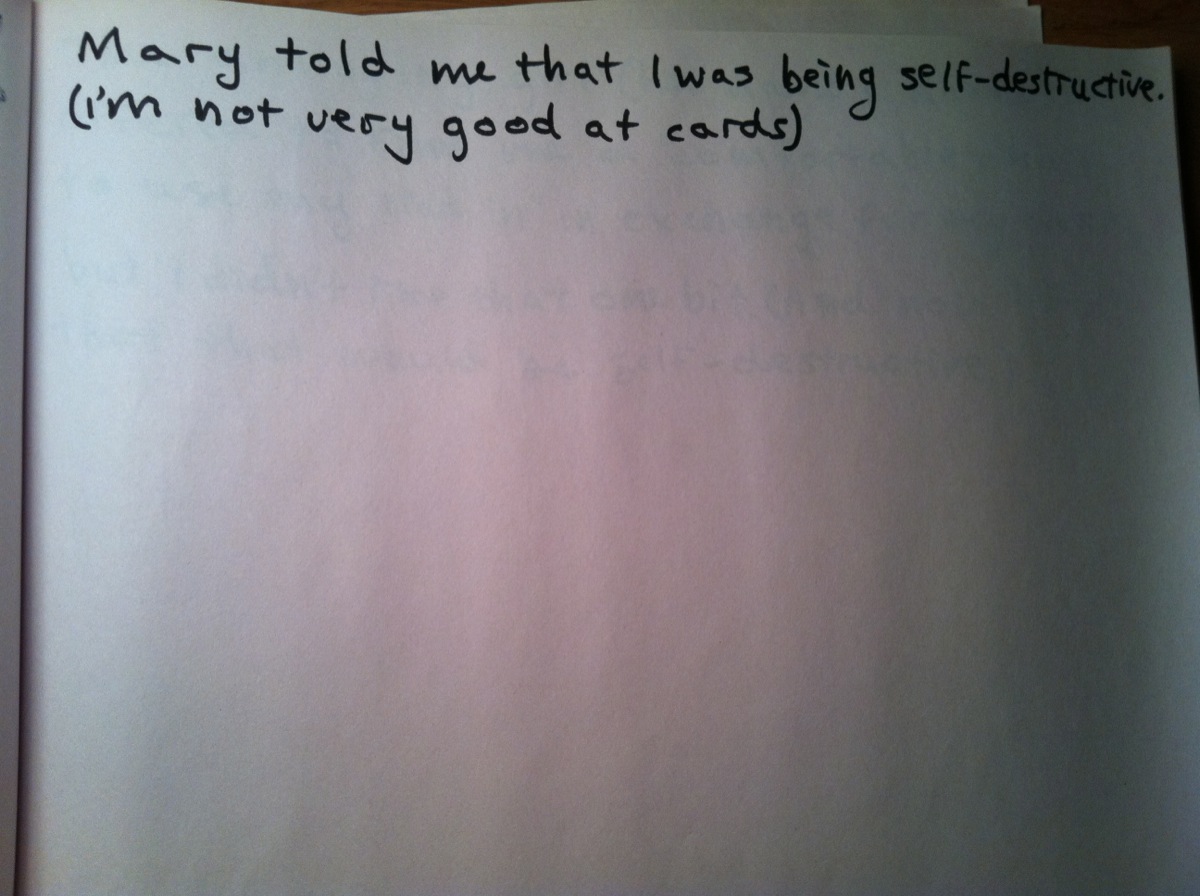 Mary told me that I was being self-destructive.
(i'm not very good at cards)